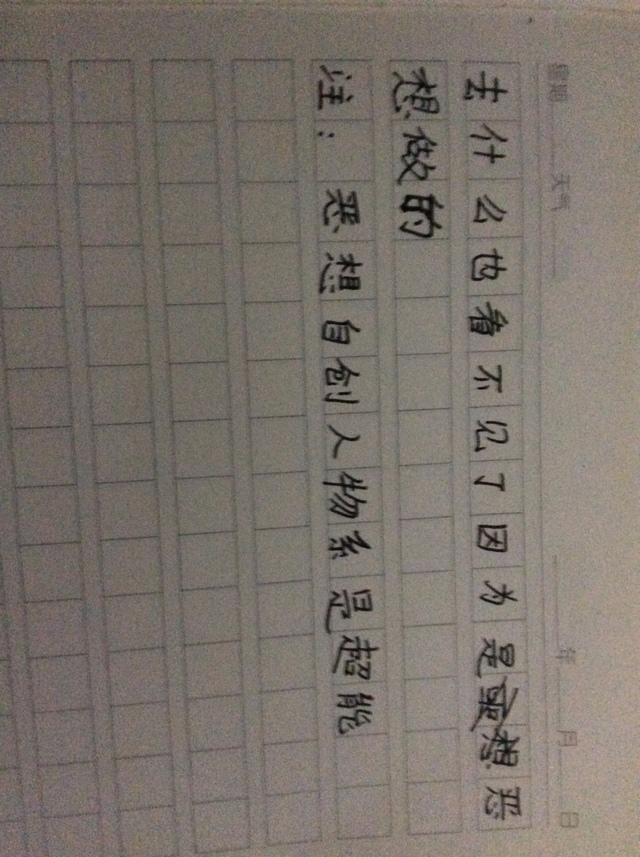 星期 天气 年 月 日
去什么也看不见了因为是想恶
想做的
注：恶想自创人物系是超能